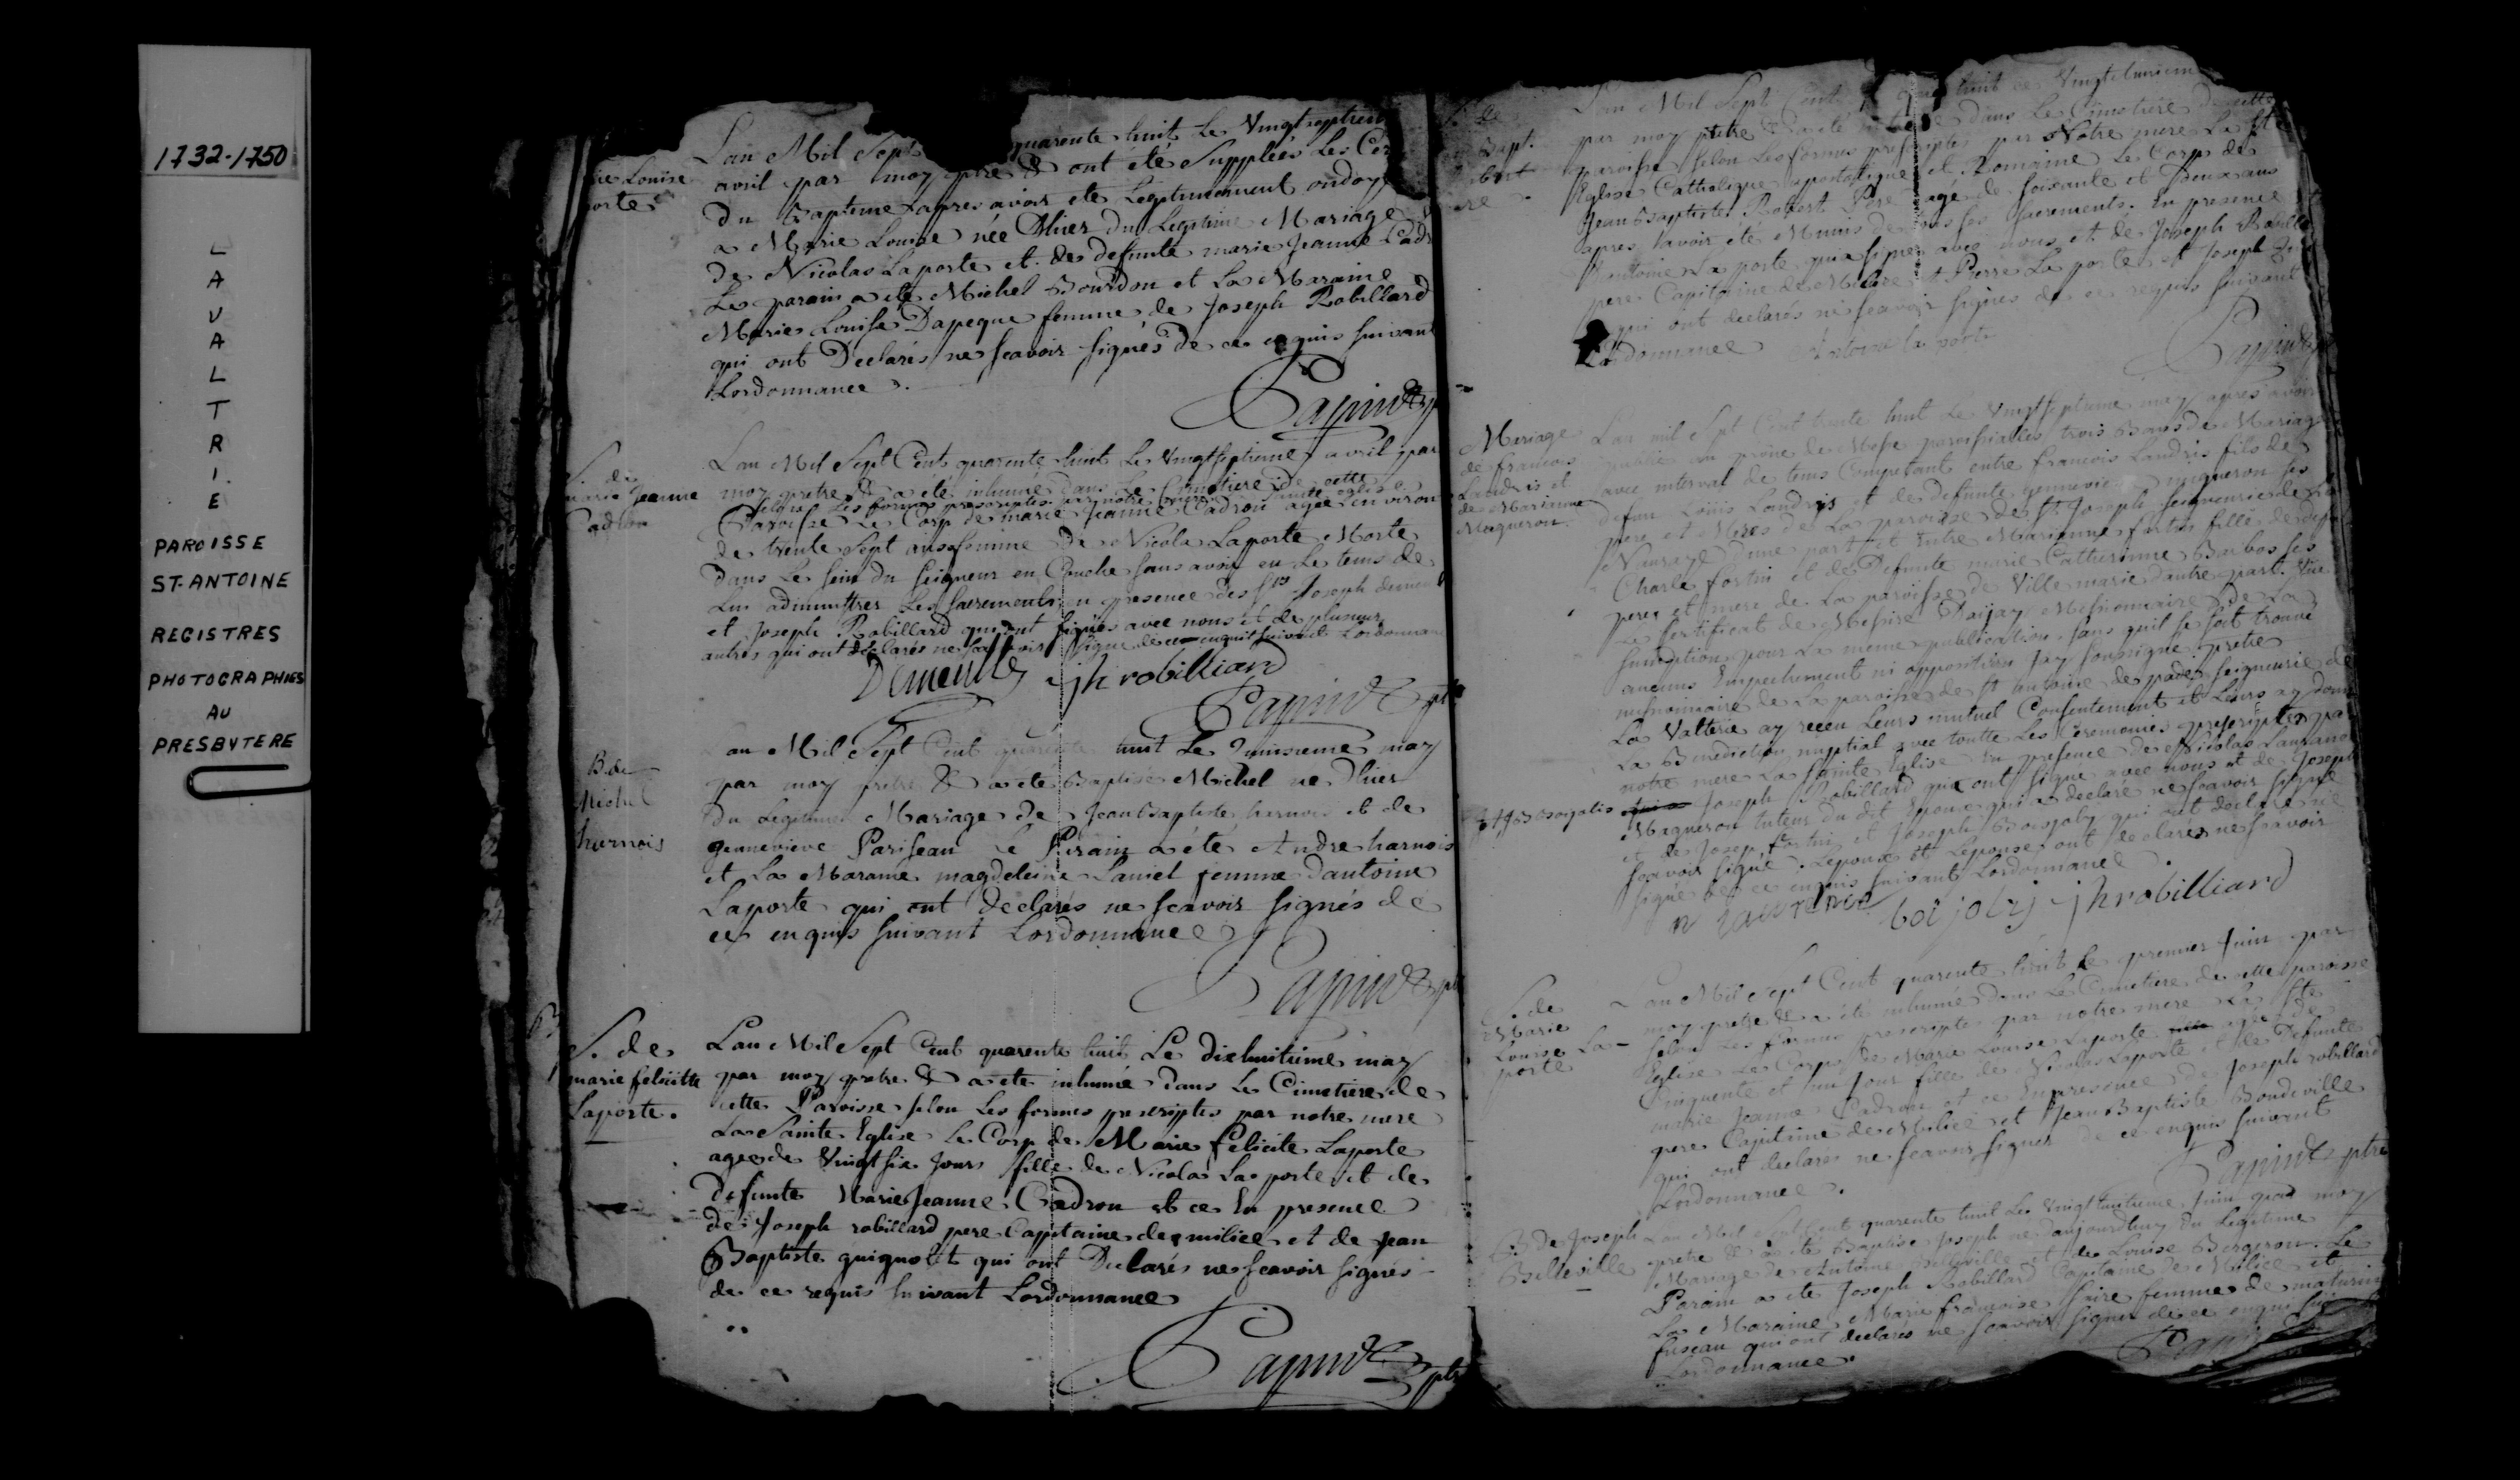 1732-1750
LAVALTRIE
PAROISSE
ST-ANTOINE
REGISTRES
PHOTOGRAPHIES
AU
PRESBYTERE
Louise
porte
Lan Mil Sept quarente huit Le Vingtseptiem
avril par moy ptre & ont été Supplées Les Cer
du Bapteme apres avoir ete Legitimement ondoy
a Marie Louise née Dhier du Legitime Mariage
de Nicolas Laporte et de defunte marie Jeanne Cadr
Le parain a ete Michel Bourdon et La Maraine
Marie Louise Dapeque femme de Joseph Robillard
qui ont Declarés ne scavoir signés de ce enquis suivant
Lordonnance.
Papin ptr
S. de
marie Jeanne
Cadron
Lan Mil Sept Cent quarente huit Le Vingtseptieme avril par
moy pretre & a été inhumé dans Le Cimetiere de cette
selon Les formes prescriptes par notre mere Sainte eglise
Paroisse Le Corp de marie Jeanne Cadron agée environ
de trente Sept ans femme de Nicola Laporte Morte
dans Le sein du seigneur en Couche sans avoir eu Le tems de
Lui administrer Les sacrements en presence des Srs Joseph
et Joseph Robillard qui ont signés avec nous et de plusieur
autres qui ont déclarés ne scavoir signe de ce enquit suivant Lordonnan
jh robilliard
Papin ptr
B. de
Michel
harnois
an Mil Sept Cent quarente huit Le quinsieme may
par moy pretre & a ete Baptisé Michel ne Dhier
du Legitime Mariage de Jean Baptiste harnois et de
genneviève Pariseau Le Parain a été Andre harnois
et La Maraine magdeleine Laniel femme dantoine
Laporte qui ont declarés ne scavoir signés de
ce enquis suivant Lordonnance
Papin ptr
S. de
marie felicitte
Laporte.
Lan Mil Sept Cent quarente huit Le dixhuitieme may
par moy pretre & a ete inhumée dans Le Cimetiere de
cette Paroisse selon Les formes prescriptes par notre mere
La Sainte Eglise Le Corp de Marie felicite Laporte
agee de Vingt six Jours fille de Nicolas Laporte et de
defunte Marie Jeanne Cadron et ce En presence
de Joseph robillard pere Capitaine de milice et de jean
Baptiste guignolet qui ont Declarés ne scavoir signés
de ce requis suivant Lordonnance
Papin ptr
S. de
Bapt.
Lan Mil Sept Cent huit ce Vingt
par moy ptre & a ete dans Le Cimetiere de cette
paroisse selon Les formes prescriptes par Notre mere La Ste
Eglise Catholique apostolique et Romaine Le Corp de
Jean Baptiste Robert Pere agé de soixante et Deux ans
apres avoir été Munis de tous ses sacrements. En presence
Antoine La porte qui a signes avec nous et de Joseph Robilla
pere Capitaine de Milice et Pierre La porte et Joseph
qui ont declarés ne scavoir signés de ce requis suivant
Lordonnance
Papin
Mariage
de francois
Landris et
de Marianne
Migneron.
Lan mil Sept Cent trente huit Le Vingtseptieme may apres avoir
publie au prône de Messe paroissialles trois Bans de Mariage
avec interval de tems Competant entre francois Landris fils de
defun Louis Landris et de defunte genneviève migneron ses
pere et Meres de La paroisse de St. Joseph seigneurie de La
Noraye Dune part et Entre Marianne fortin fille de defun
Charle fortin et de Defunte marie Catherinne ses
peres et mere de La paroisse de Ville marie dautre part. Vüe
Le sertificat de Messire Missionnaire de La
susdite pour La meme publication, sans quil se soit trouvé
aucuns Empechement ni oppositions Jay soussigne pretre
missionnaire de La paroisse de St antoine de pades seigneurie de
La Valterie ay receu Leurs mutuel Consentement et Leurs ay donné
La Benediction nuptial avec toutte Les Ceremonies prescriptes par
notre mere La Sainte Eglise En presence de Nicolas
Joseph Robillard qui ont signe avec nous et de Joseph
Migneron tuteur du dit Epoux qui a declaré ne scavoir signé
et de Josep fortin et Joseph Boisjoly qui ont declare ne
scavoir signé. Lepoux et Lepouse ont declarez ne scavoir
signé de ce enquis suivant Lordonnance.
boi joly jh robilliard
S. de
Marie
Louise La-
porte
Lan Mil Sept Cent quarente huit Le premier Juin par
moy pretre & a été inhumée dans Le Cimetiere de cette paroisse
selon Les formes prescriptes par notre mere La Ste
Eglise Le Corps de Marie Louise Laporte agée de
Cinquente et un Jour fille de Nicolas Laporte et de Defunte
marie Jeanne Cadron et ce En presence de Joseph robillard
pere Capitaine de Milice et Jean Baptiste Bondeville
qui ont declarés ne scavoir signer de ce enquis suivant
Lordonnance.
Papin ptre
B. de Joseph
Belleville
Lan Mil Sept Cent quarente huit Le Vingthuitieme Juin par moy
pretre & a ete Baptise Joseph né aujourdhuy du Legitime
Mariage de Antoine Belleville et de Louise Bergeron. Le
Parain a ete Joseph Robillard Capitaine de Milice et
La Maraine Marie francoise faire femme de maturin
fuseau qui ont declares ne scavoir signer de ce enqui sui
Lordonnance.